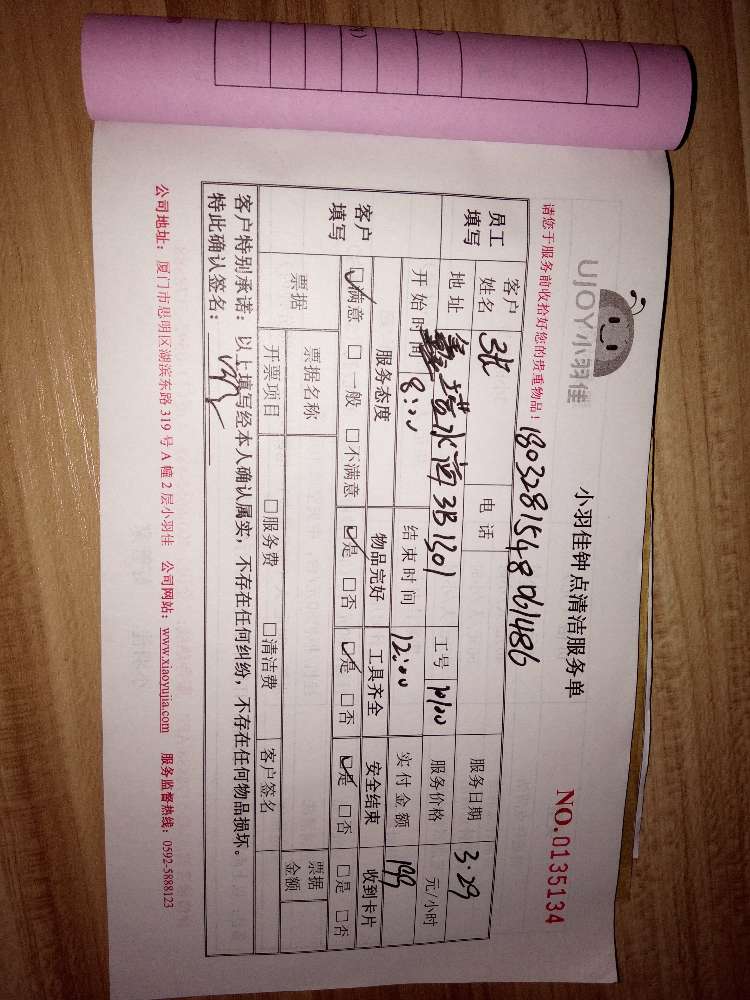 UJOY小羽佳
小羽佳钟点清洁服务单
NO.0135134
请您于服务前收拾好您的贵重物品！
18032815480161486
员工填写
客户姓名 张 电话 服务日期 3.29
地址 水 3B1301 工号 服务价格 元/小时
开始时间 8:00 结束时间 12:00 实付金额
客户填写
服务态度 物品完好 工具齐全 安全结束 收到卡片
☑满意 □一般 □不满意 ☑是 □否 ☑是 □否 ☑是 □否 □是 □否
票据 票据名称 票据金额
开票项目 □服务费 □清洁费 客户签名
客户特别承诺：以上填写经本人确认属实，不存在任何纠纷，不存在任何物品损坏。
特此确认签名：
公司地址：厦门市思明区湖滨东路 319 号 A 幢 2 层小羽佳 公司网站：www.xiaoyujia.com 服务监督热线：0592-5888123